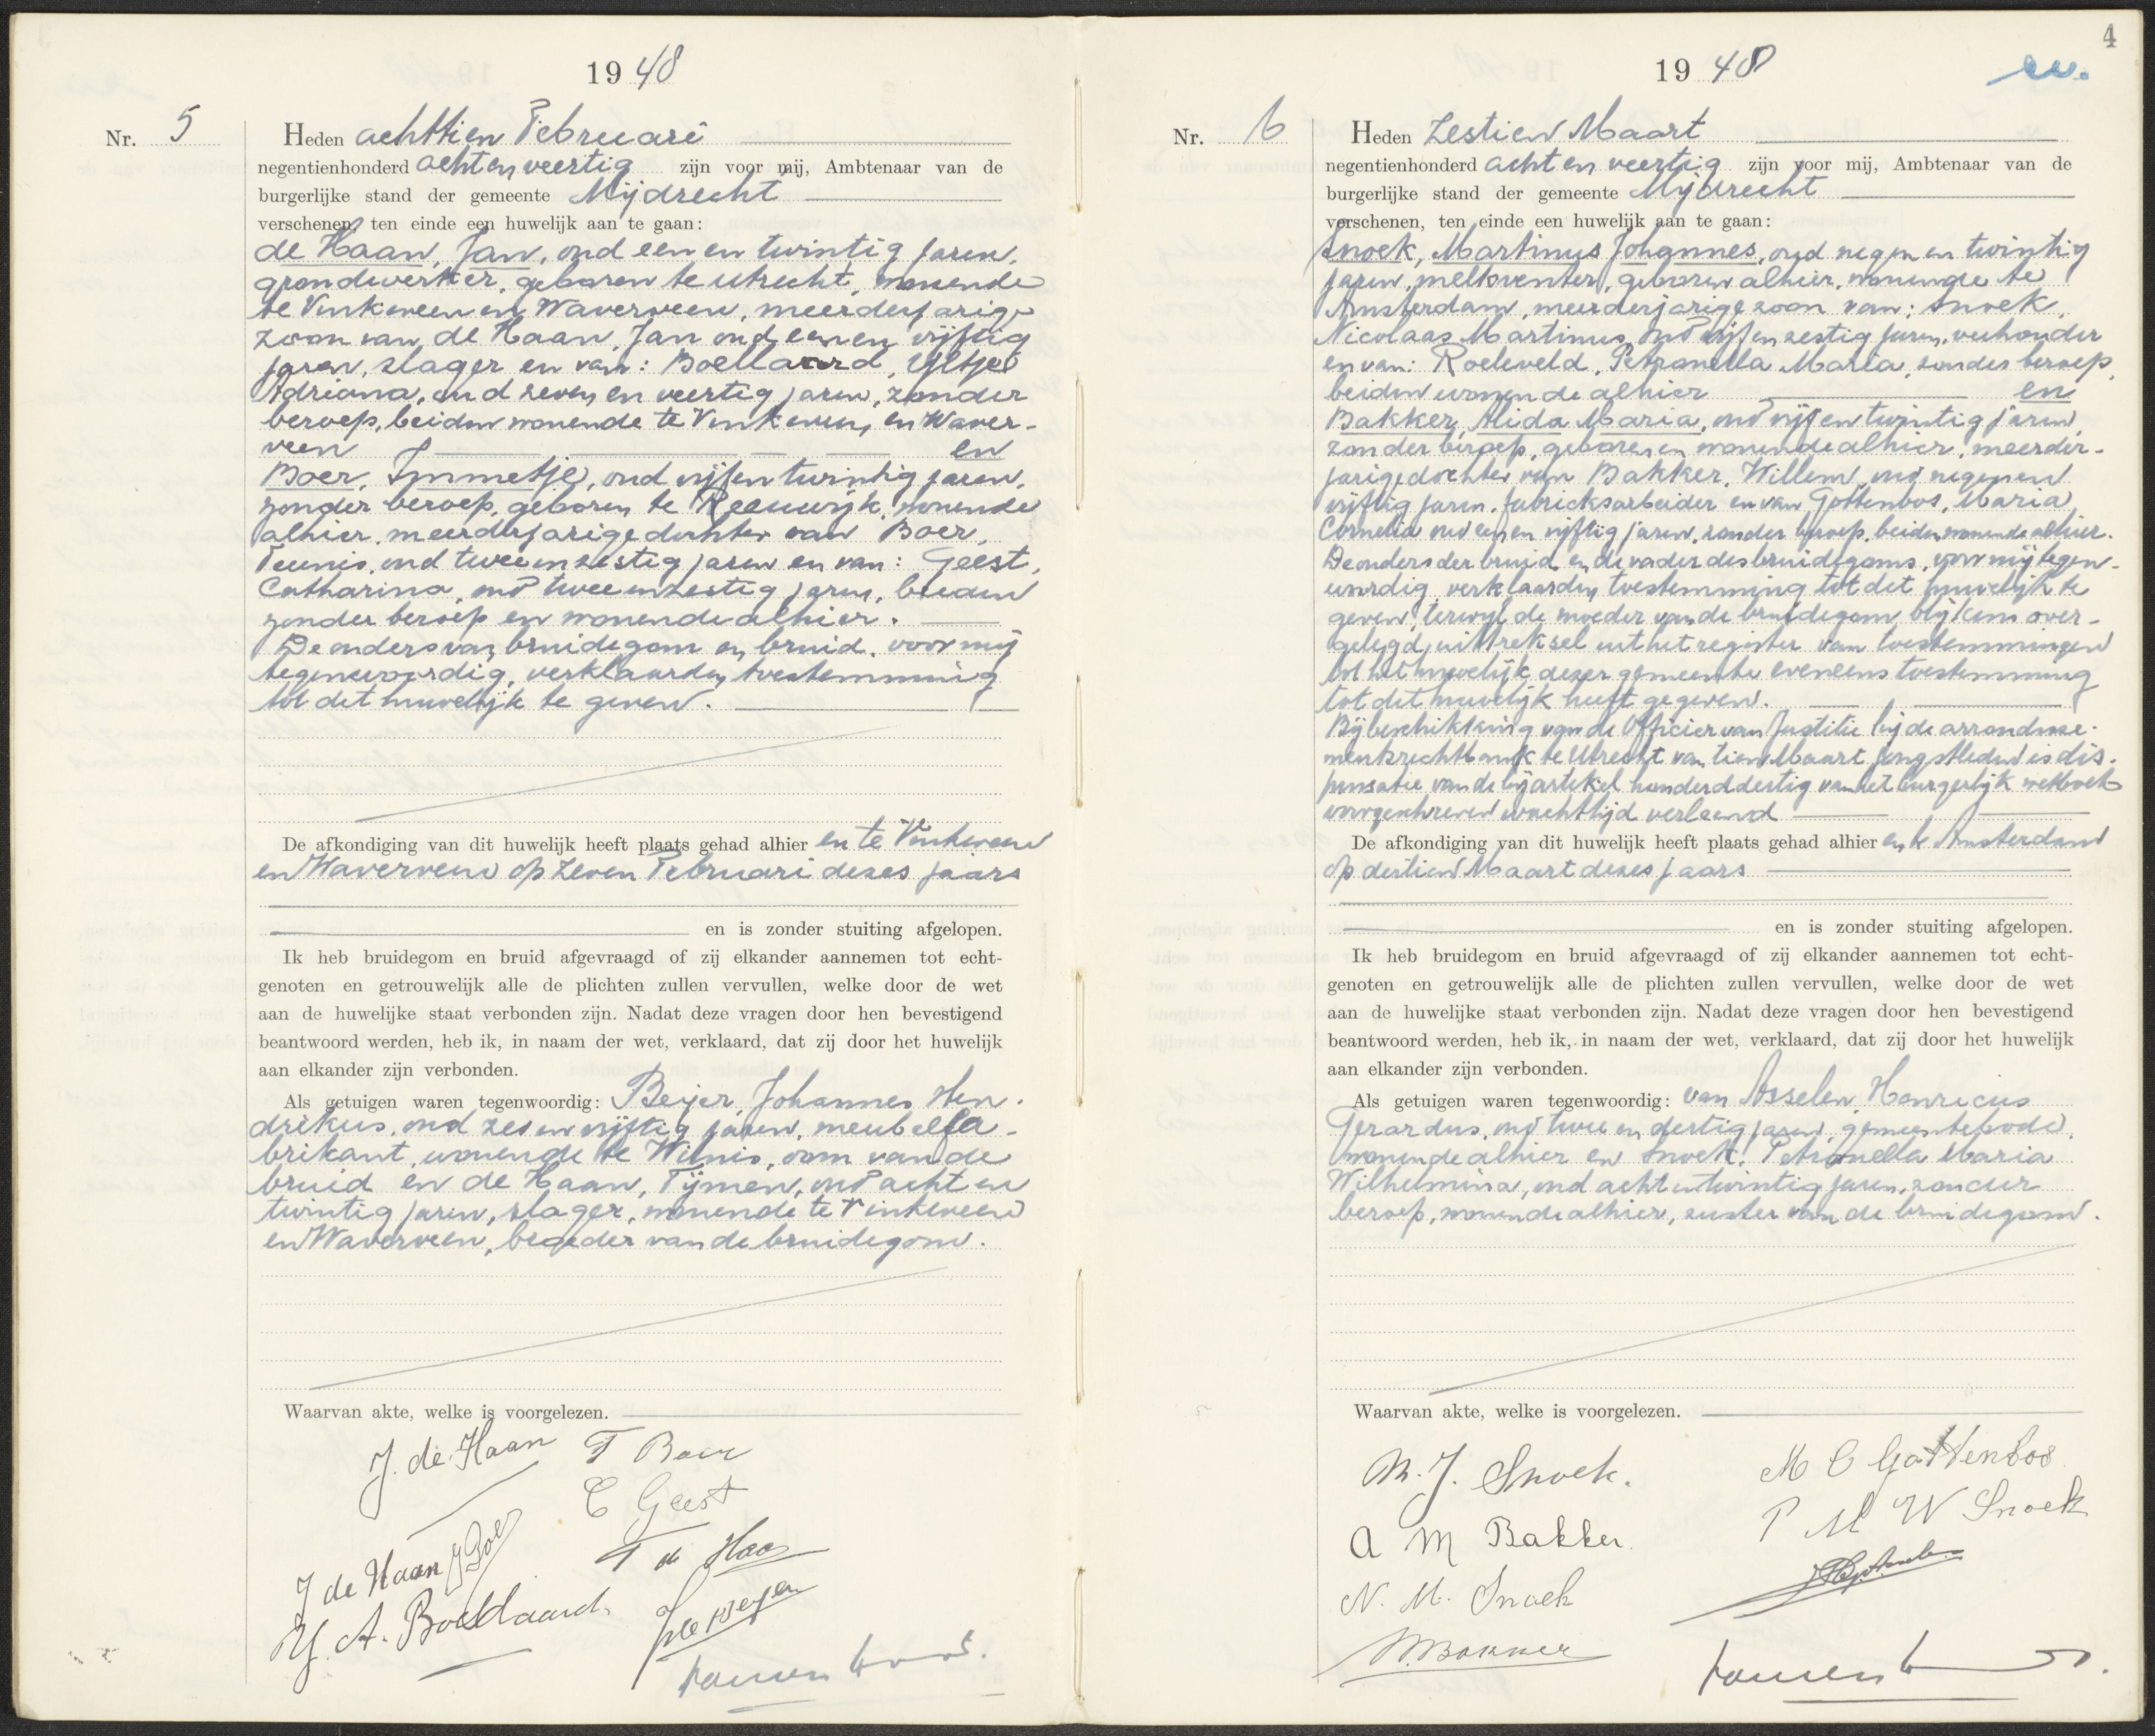 1948
Nr. 5
Heden achttien Februari
negentienhonderd acht en veertig zijn voor mij, Ambtenaar van de
burgerlijke stand der gemeente Mijdrecht
verschenen, ten einde een huwelijk aan te gaan:
de Haan, Jan, oud een en twintig jaren,
grondwerker, geboren te Utrecht, wonende
te Vinkeveen en Waverveen, meerderjarige
zoon van de Haan, Jan oud een en vijftig
jaren, slager en van: Boellaard, IJltje
Adriana, oud zeven en veertig jaren, zonder
beroep, beiden wonende te Vinkeveen en Waver-
veen en
Boer, Immetje, oud vijf en twintig jaren,
zonder beroep, geboren te Reeuwijk, wonende
alhier, meerderjarige dochter van Boer,
Teunis, oud twee en zestig jaren en van: Geest,
Catharina, oud twee en zestig jaren, beiden
zonder beroep en wonende alhier.
De ouders van bruidegom en bruid, voor mij
tegenwoordig, verklaarden toestemming
tot dit huwelijk te geven.
De afkondiging van dit huwelijk heeft plaats gehad alhier en te Vinkeveen
en Waverveen op zeven Februari dezes jaars
en is zonder stuiting afgelopen.
Ik heb bruidegom en bruid afgevraagd of zij elkander aannemen tot echt-
genoten en getrouwelijk alle de plichten zullen vervullen, welke door de wet
aan de huwelijke staat verbonden zijn. Nadat deze vragen door hen bevestigend
beantwoord werden, heb ik, in naam der wet, verklaard, dat zij door het huwelijk
aan elkander zijn verbonden.
Als getuigen waren tegenwoordig: Beijer, Johannes Hen-
drikus, oud zes en vijftig jaren, meubelfa-
brikant, wonende te Wilnis, oom van de
bruid en de Haan, Tijmen, oud acht en
twintig jaren, slager, wonende te Vinkeveen
en Waverveen, broeder van de bruidegom.
Waarvan akte, welke is voorgelezen.
J. de Haan T Boer
C Geest
J de Haan I Boer T de Haan
IJ. A. Boellaard.
4
1948
Nr. 6
Heden Zestien Maart
negentienhonderd acht en veertig zijn voor mij, Ambtenaar van de
burgerlijke stand der gemeente Mijdrecht
verschenen, ten einde een huwelijk aan te gaan:
Snoek, Martinus Johannes, oud negen en twintig
jaren, melkventer, geboren alhier, wonende te
Amsterdam, meerderjarige zoon van: Snoek,
Nicolaas Martinus, oud vijf en zestig jaren, veehouder
en van: Roeleveld, Petronella Maria, zonder beroep,
beiden wonende alhier en
Bakker, Alida Maria, oud vijf en twintig jaren,
zonder beroep, geboren en wonende alhier, meerder-
jarige dochter van Bakker, Willem, oud negen en
vijftig jaren, fabrieksarbeider en van Gottenbos, Maria
Cornelia oud een en vijftig jaren, zonder beroep, beiden wonende alhier.
De ouders der bruid en de vader des bruidegoms, voor mij tegen-
woordig, verklaarden toestemming tot dit huwelijk te
geven, terwijl de moeder van de bruidegom blijkens over-
gelegd uittreksel uit het register van toestemmingen
tot het huwelijk dezer gemeente eveneens toestemming
tot dit huwelijk heeft gegeven.
Bij beschikking van de Officier van Justitie bij de arrondisse-
mentsrechtbank te Utrecht van tien Maart jongstleden is dis-
pensatie van de bij artikel honderd dertig van het burgerlijk wetboek
voorgeschreven wachttijd verleend
De afkondiging van dit huwelijk heeft plaats gehad alhier en te Amsterdam
op dertien Maart dezes jaars
en is zonder stuiting afgelopen.
Ik heb bruidegom en bruid afgevraagd of zij elkander aannemen tot echt-
genoten en getrouwelijk alle de plichten zullen vervullen, welke door de wet
aan de huwelijke staat verbonden zijn. Nadat deze vragen door hen bevestigend
beantwoord werden, heb ik, in naam der wet, verklaard, dat zij door het huwelijk
aan elkander zijn verbonden.
Als getuigen waren tegenwoordig: van Asselen, Henricus
Gerardus, oud twee en dertig jaren, gemeentebode,
wonende alhier en Snoek, Petronella Maria
Wilhelmina, oud acht en twintig jaren, zonder
beroep, wonende alhier, zuster van de bruidegom.
Waarvan akte, welke is voorgelezen.
M. J. Snoek. M C Gottenbos
A M Bakker P M W Snoek
N. M. Snoek
W. Bakker